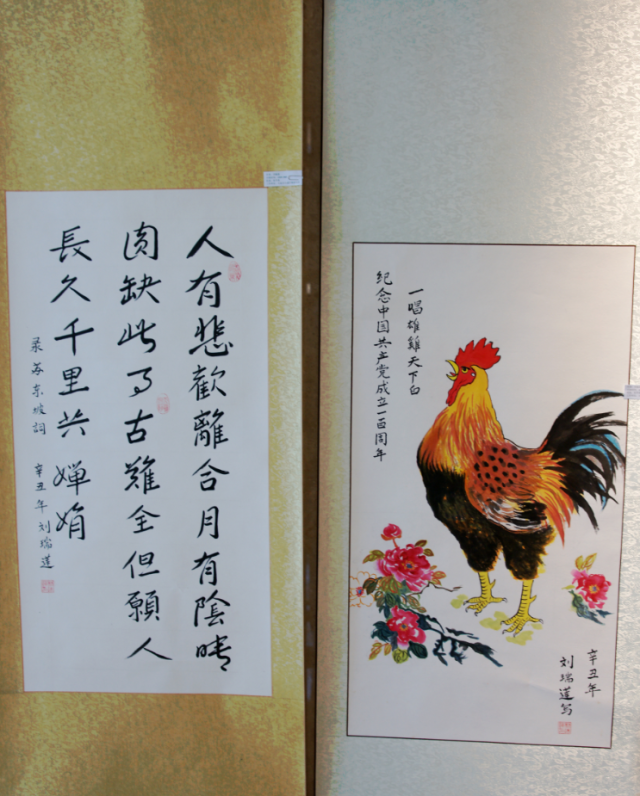 人有悲歡離合月有陰晴
圆缺此事古難全但願人
長久千里共嬋娟
录苏东坡詞 辛丑年刘瑞莲
一唱雄雞天下白
纪念中国共产党成立一百周年
辛丑年
刘瑞莲写